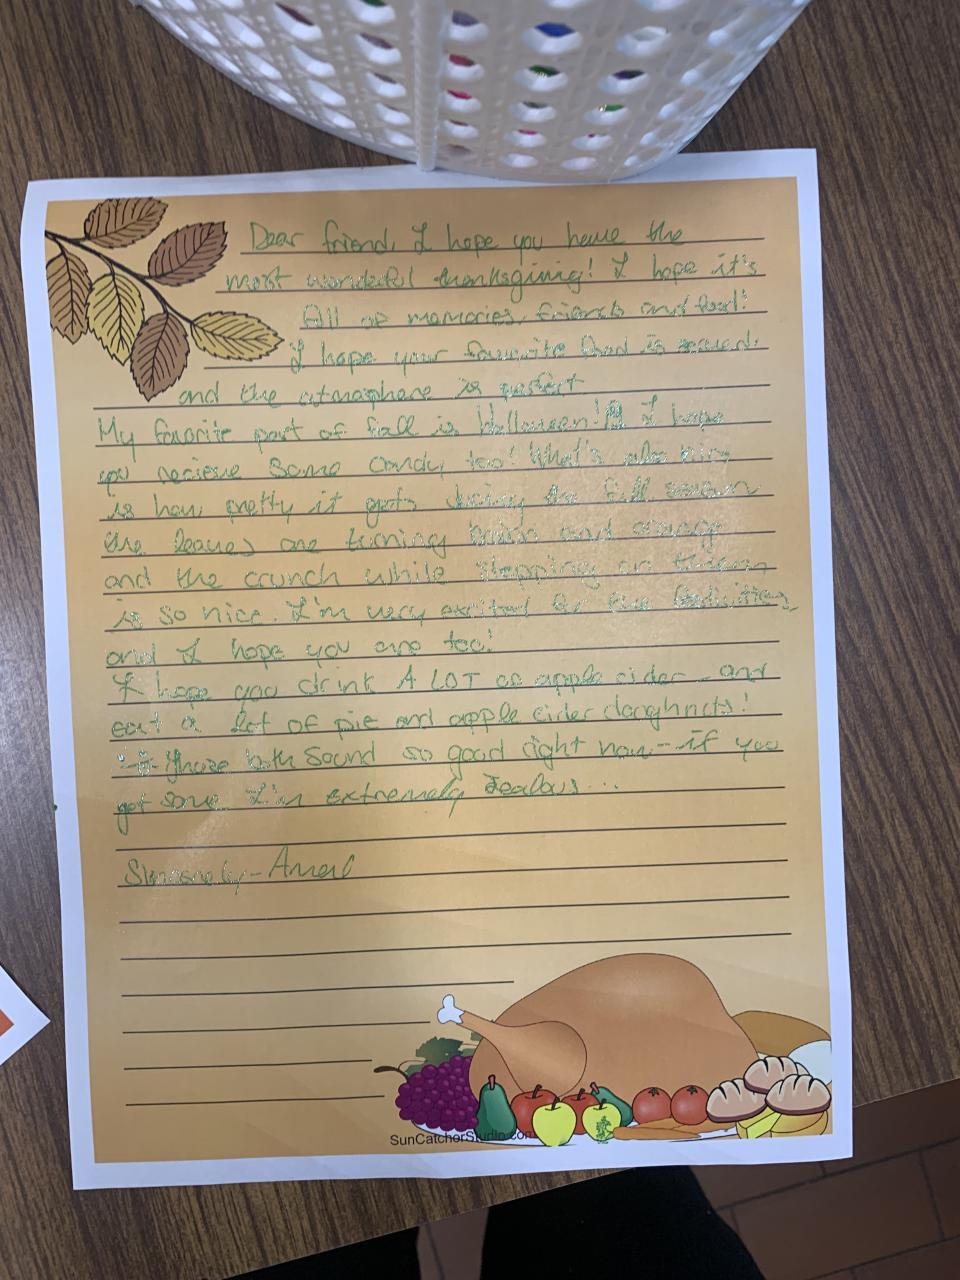 Dear friend, I hope you have the
most wonderful thanksgiving! I hope it's
All of memories, friends and food!
I hope your favorite food is served.
and the atmosphere is perfect
My favorite part of fall is Halloween! I hope
you recieve some candy too! What's also nice
is how pretty it gets during the fall season
the leaves are turning brown and orange
and the crunch while stepping on them
is so nice. I'm very excited for the festivities
and I hope you are too!
I hope you drink A LOT of apple cider and
eat a lot of pie and apple cider doughnuts!
those both sound so good right now - if you
get some I'm extremely Jealous...
Sincerely -
SunCatcherStudio.com